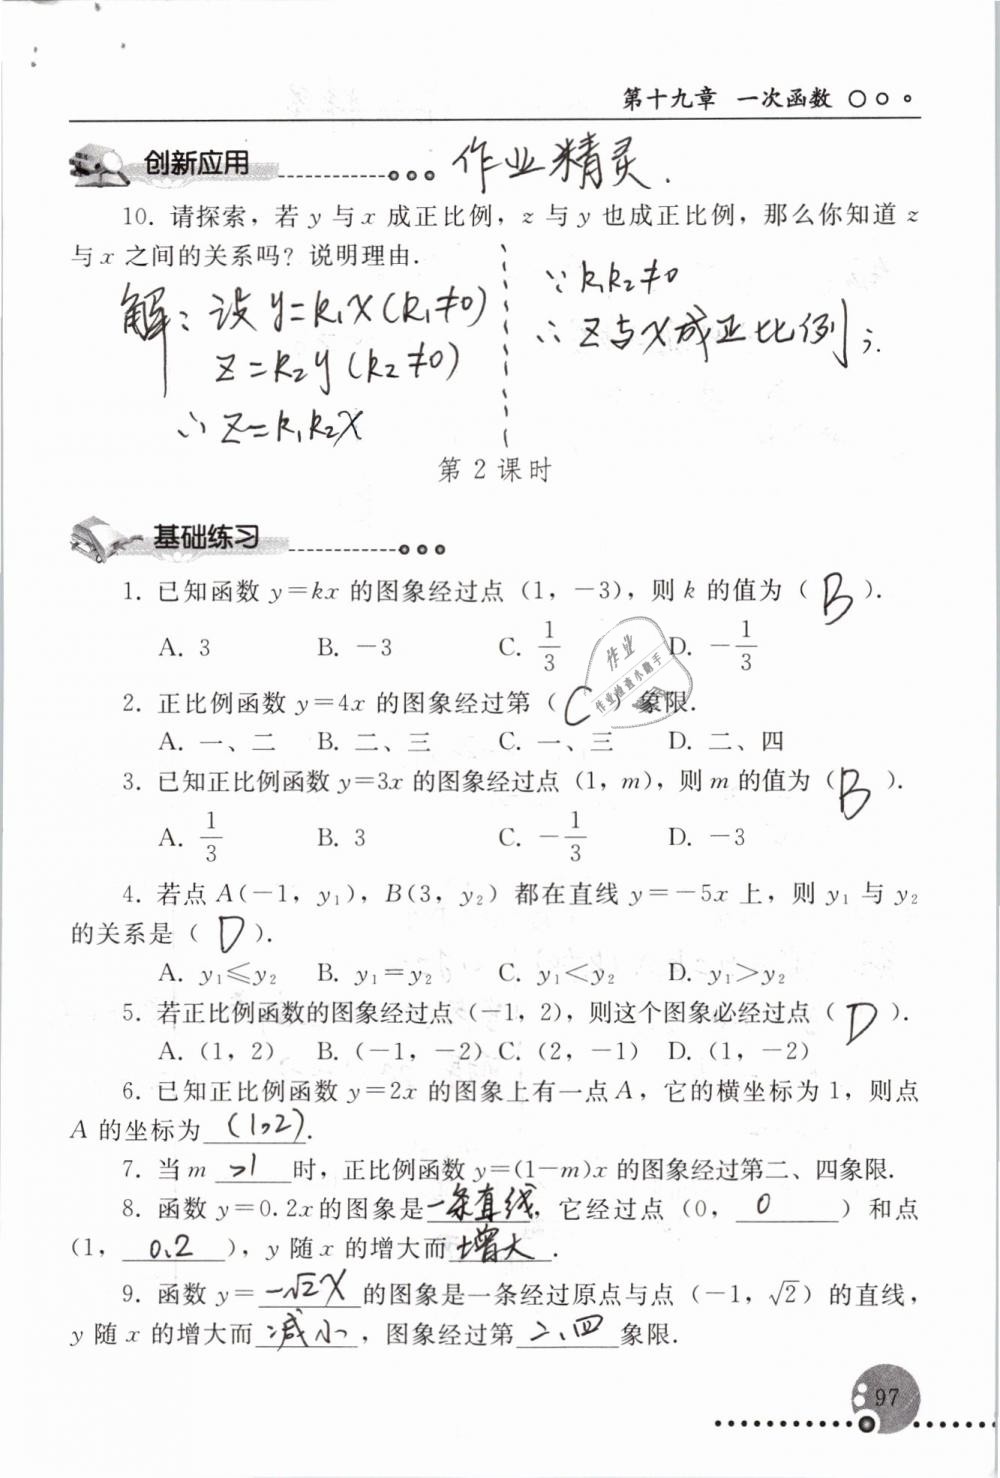 第十九章 一次函数
创新应用 作业精灵.
10. 请探索，若 y 与 x 成正比例，z 与 y 也成正比例，那么你知道 z
与 x 之间的关系吗？说明理由.
解：设 y=k₁x(k₁≠0)
z=k₂y(k₂≠0)
∴ z=k₁k₂x
∵ k₁k₂≠0
∴ z与x成正比例;.
第 2 课时
基础练习
1. 已知函数 y=kx 的图象经过点（1，－3），则 k 的值为（ B ）.
A. 3 B. －3 C. 1/3 D. －1/3
作业
作业检查小助手
2. 正比例函数 y=4x 的图象经过第（ C ）象限.
A. 一、二 B. 二、三 C. 一、三 D. 二、四
3. 已知正比例函数 y=3x 的图象经过点（1，m），则 m 的值为（ B ）.
A. 1/3 B. 3 C. －1/3 D. －3
4. 若点 A(－1，y₁)，B(3，y₂）都在直线 y=－5x 上，则 y₁ 与 y₂
的关系是（ D ）.
A. y₁≤y₂ B. y₁=y₂ C. y₁<y₂ D. y₁>y₂
5. 若正比例函数的图象经过点（－1，2），则这个图象必经过点（ D ）.
A.（1，2） B.（－1，－2） C.（2，－1） D.（1，－2）
6. 已知正比例函数 y=2x 的图象上有一点 A，它的横坐标为 1，则点
A 的坐标为 (1,2).
7. 当 m >1 时，正比例函数 y=(1－m)x 的图象经过第二、四象限.
8. 函数 y=0.2x的图象是一条直线，它经过点（0， 0 ）和点
（1， 0.2 ），y 随 x 的增大而 增大.
9. 函数 y= －√2x 的图象是一条经过原点与点（－1，√2）的直线，
y 随 x 的增大而 减小，图象经过第 二、四 象限.
97